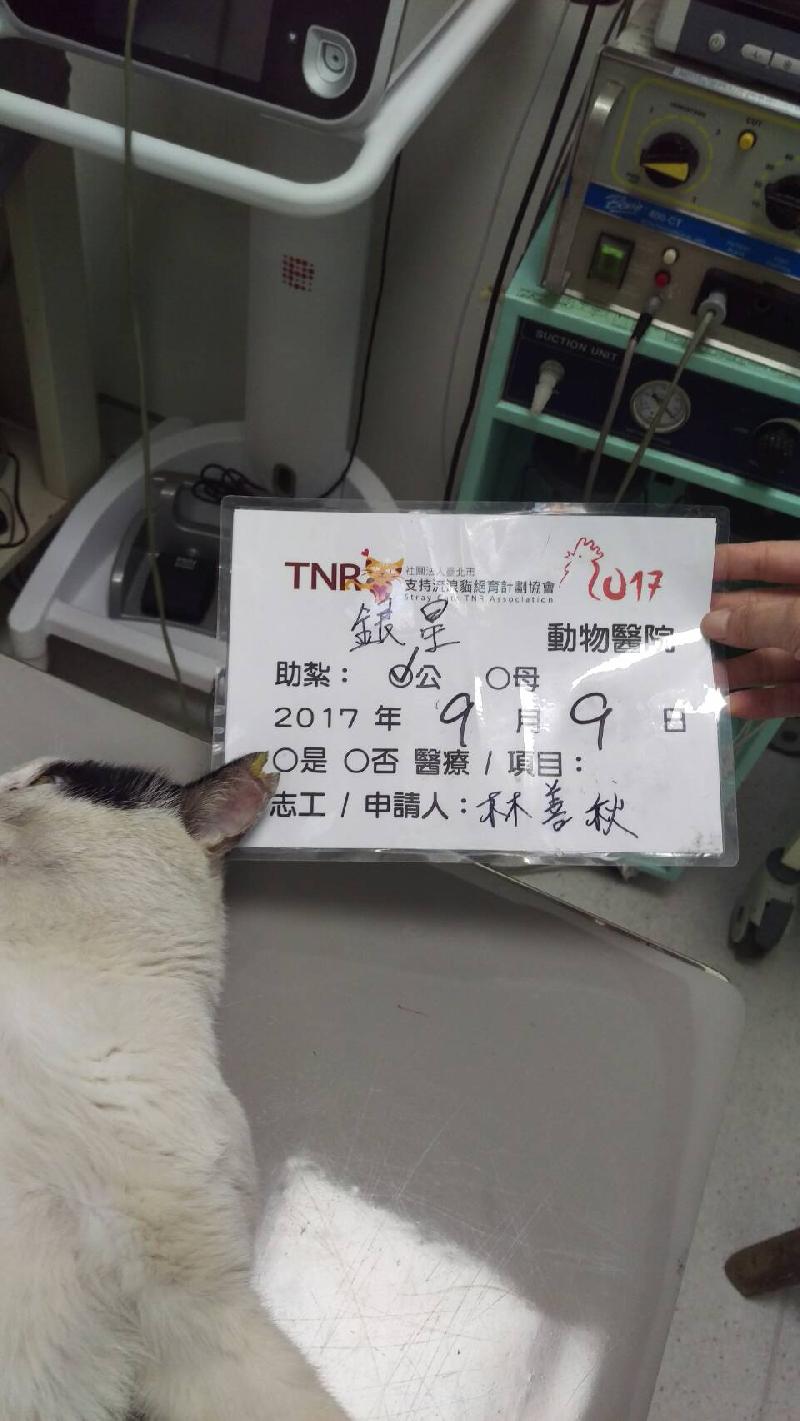 CUT
400-CT
SUCTION UNIT
TNR 社團法人臺北市
支持流浪貓絕育計劃協會 2017
Stray Cats TNR Association
銀星 動物醫院
助紮： ✓公 ○母
2017 年 9 月 9 日
○是 ○否 醫療 / 項目：
志工 / 申請人：林善秋